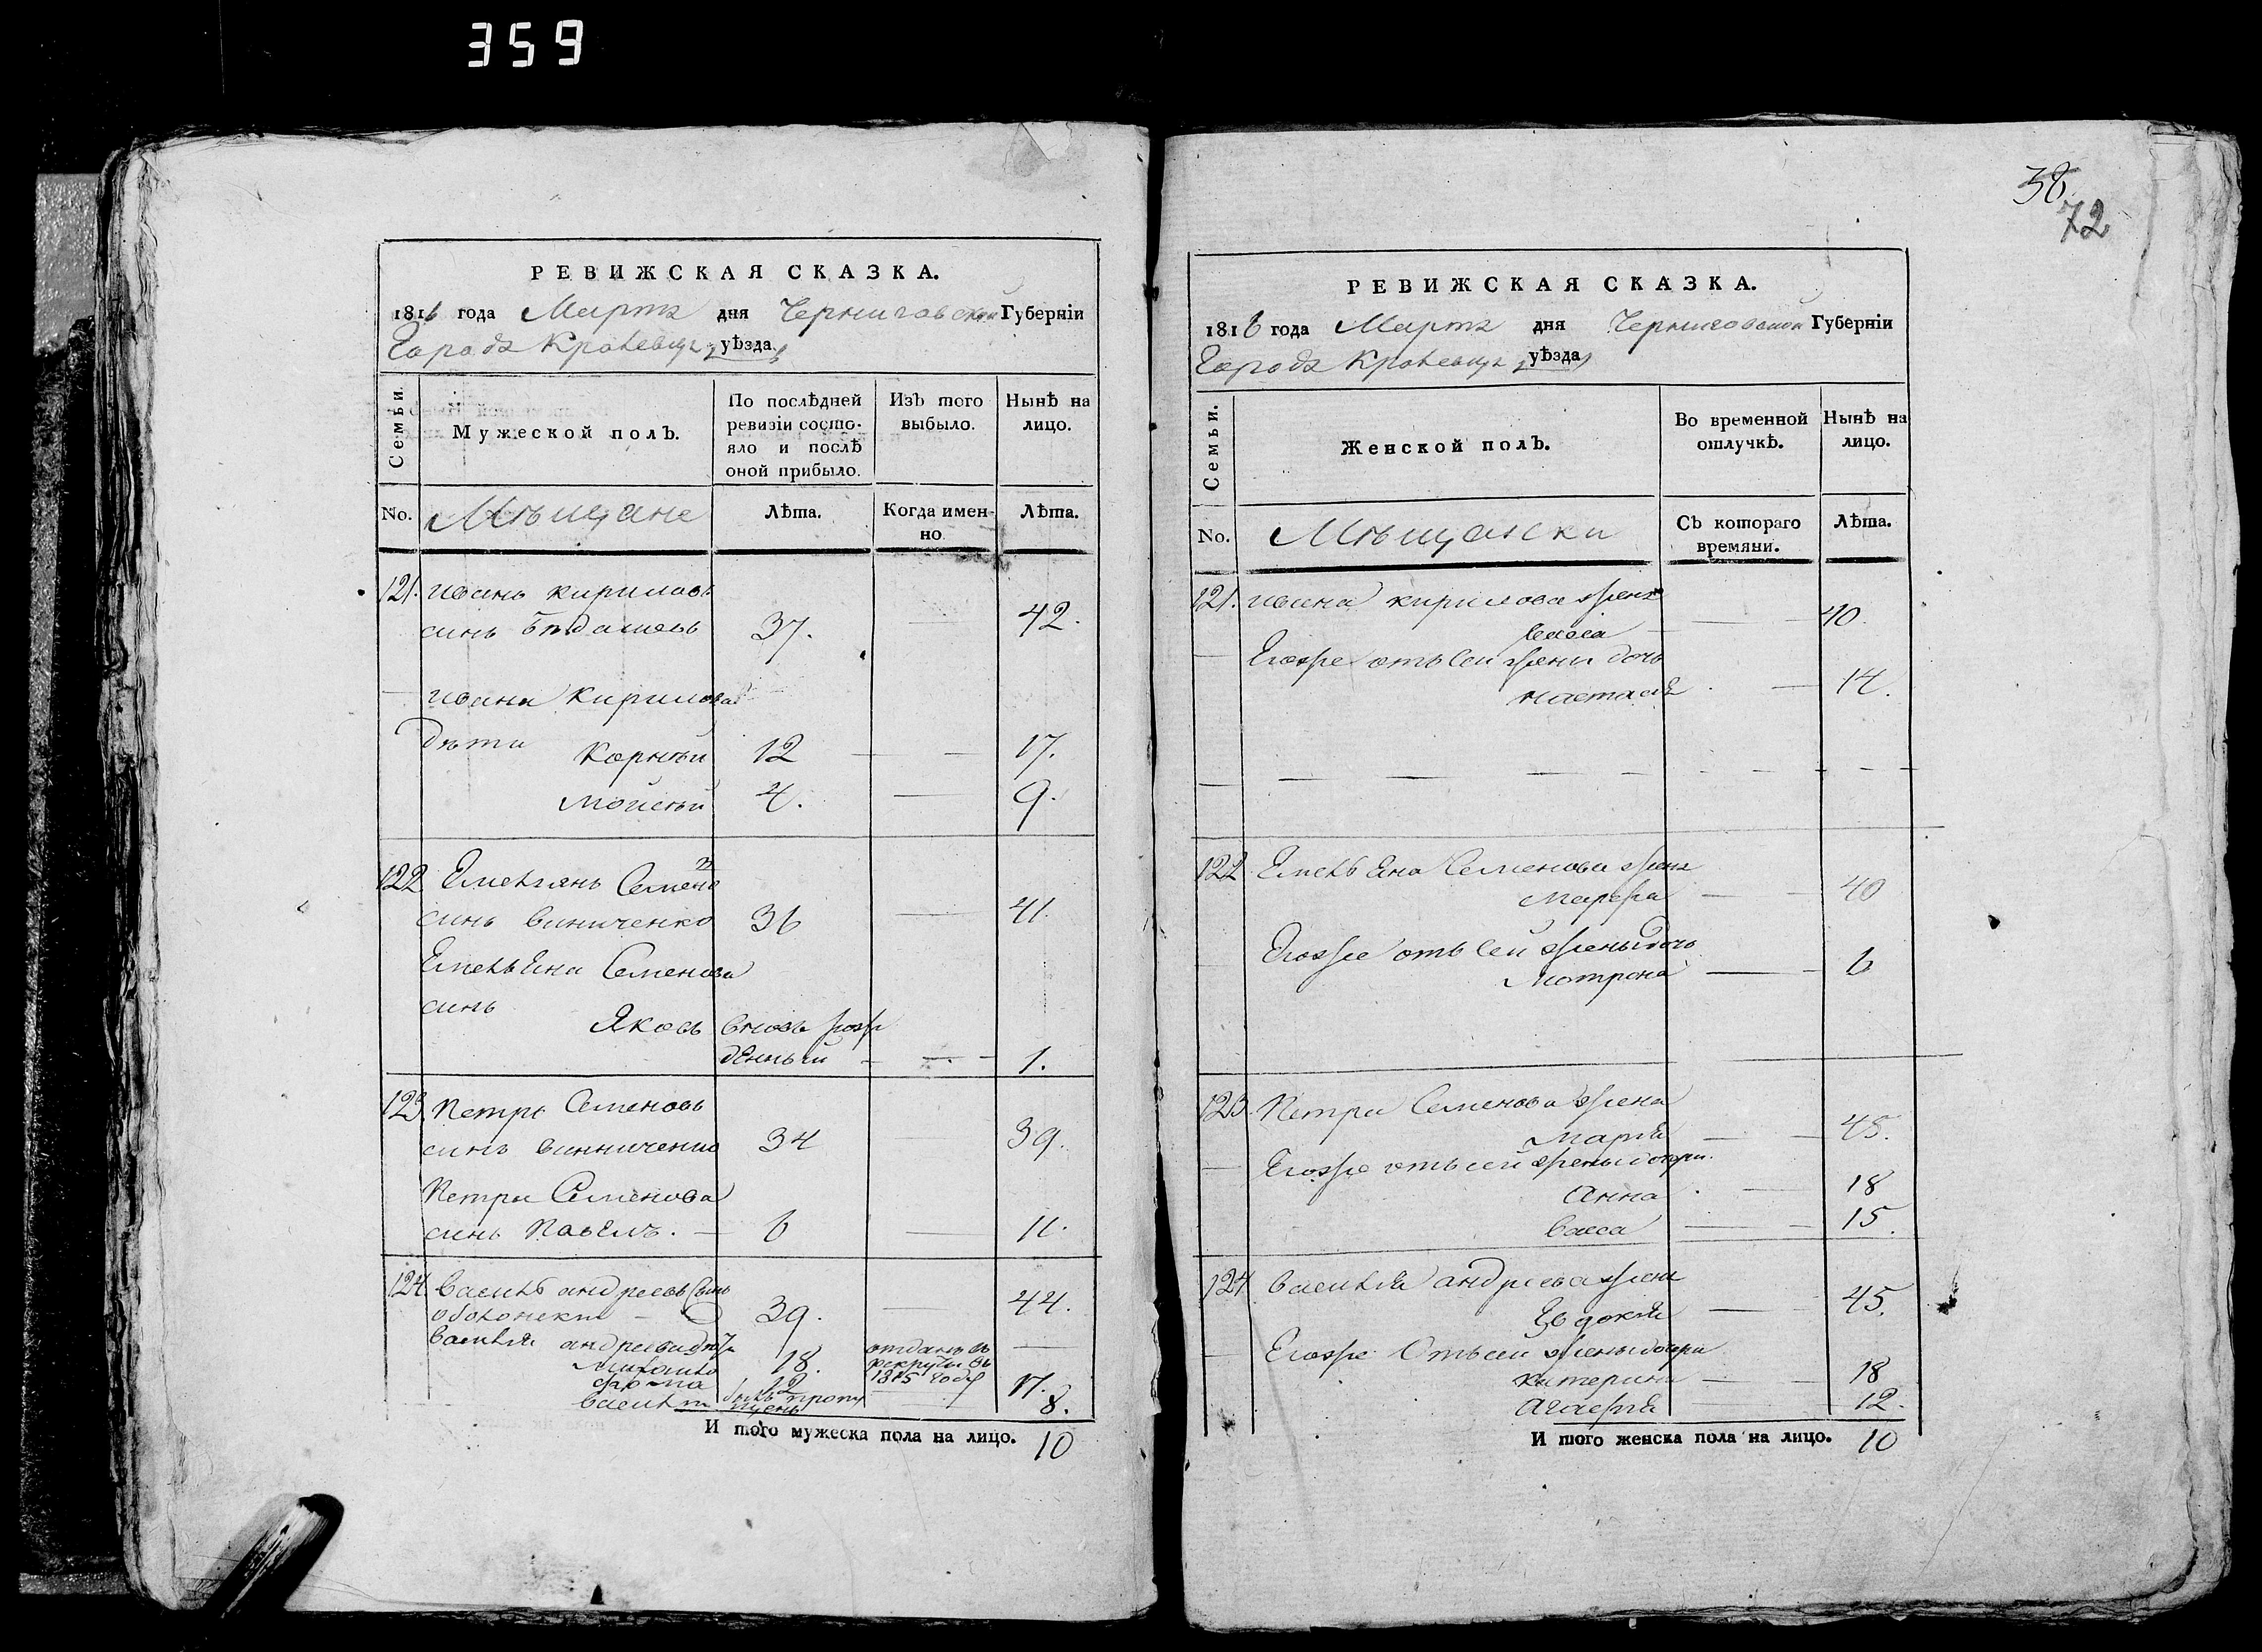 359
РЕВИЖСКАЯ СКАЗКА.
1816 года Марта дня Черниговской Губерніи
Города Кролевца уѣзда
Семьи.
Мужеской полъ.
По послѣдней ревизіи состо-
яло и послѣ
оной прибыло.
Изъ того
выбыло.
Нынѣ на
лицо.
No. Мѣщане
Лѣта.
Когда имен-
но
Лѣта.
121. иванъ кириловъ
синъ 37. 42.
ивана Кирилова
дѣти Корнѣй 12 17.
Мойсѣй 4. 9.
122 Емельянъ Семено
синъ виниченко 36 41.
Емельяна Семенова
синъ
Яковъ вновь рож
денный 1.
123. Петръ Семеновъ
синъ винниченко 34 39.
Петра Семенова
синъ Павелъ. 6 11.
124. василь андреевъ синъ
оболонскій 39. 44.
василія андреева дѣти
18. отданъ въ
рекруты въ
1815 году
12 17.
василій билъ пропу
щенъ 8.
И того мужеска пола на лицо. 10
38
72
РЕВИЖСКАЯ СКАЗКА.
1816 года Марта дня Черниговской Губерніи
Города Кролевца уѣзда
Семьи.
Женской полъ.
Во временной
отлучкѣ.
Нынѣ на
лицо.
No. Мѣщански
Съ котораго
времяни.
Лѣта.
121. ивана кирилова жена
васса 40.
Егоже отъ сей жени дочь
настасія 14.
122 Емельяна Семенова жена
Марфа 40
Егоже отъ сей жены дочь
Мотрона 6
123. Петра Семенова жена
Марія 45.
Егоже отъ сей жены дочери.
Анна 18
васса 15.
124 василія андреева жена
Евдокія 45.
Егоже Отъ сей жены дочери
катерина 18
Агафія 12.
И того женска пола на лицо. 10